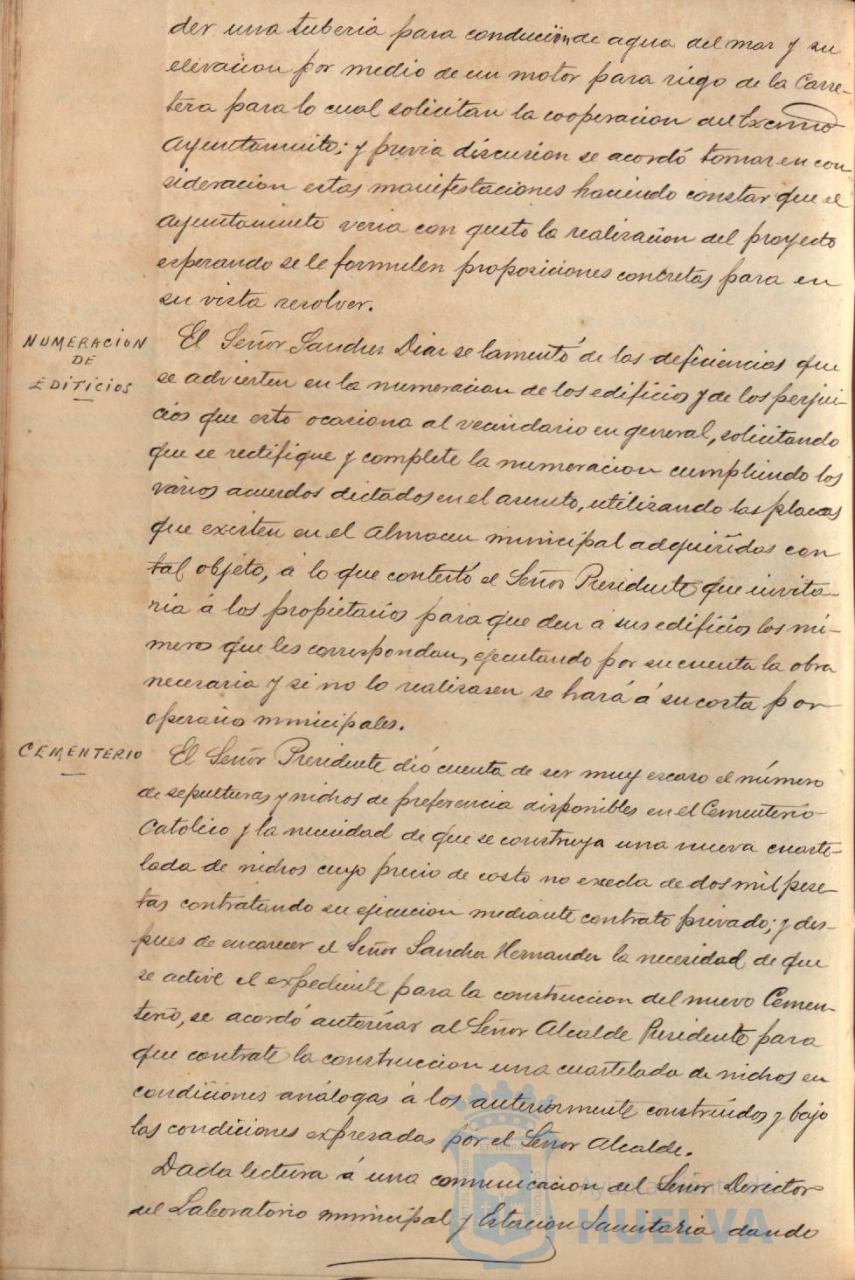 der una tuberia para conducción de agua del mar y su
elevacion por medio de un motor para riego de la Carre-
tera para lo cual solicitan la cooperacion del Excmo
Ayuntamiento; y previa discusion se acordó tomar en con
sideracion estas manifestaciones haciendo constar que el
Ayuntamiento veria con gusto la realizacion del proyecto
esperando se le formulen proposiciones concretas para en
su vista resolver.
NUMERACIÓN
DE
EDIFICIOS
El Señor Sanchez Diaz se lamentó de las deficiencias que
se advierten en la numeracion de los edificios y de los perjui-
cios que esto ocasiona al vecindario en general, solicitando
que se rectifique y complete la numeracion cumpliendo los
varios acuerdos dictados en el asunto, utilizando las placas
que existen en el Almacen municipal adquiridas con
tal objeto, á lo que contestó el Señor Presidente que invita-
ria á los propietarios para que den á sus edificios los nú-
meros que les correspondan, ejecutando por su cuenta la obra
necesaria y si no lo realizasen se hará á su costa por
operarios municipales.
CEMENTERIO
El Señor Presidente dió cuenta de ser muy escaso el número
de sepulturas y nichos de preferencia disponibles en el Cementerio
Catolico y la necesidad de que se construya una nueva cuarte-
lada de nichos cuyo precio de costo no exceda de dos mil pese-
tas contratando su ejecucion mediante contrato privado; y des-
pues de encarecer el Señor Sanchez Hernandez la necesidad de que
se active el expediente para la construccion del nuevo Cemen-
terio, se acordó autorizar al Señor Alcalde Presidente para
que contrate la construccion una cuartelada de nichos en
condiciones análogas á los anteriormente construidos y bajo
las condiciones expresadas por el Señor Alcalde.
Dada lectura á una comunicacion del Señor Director
del Laboratorio municipal y Estacion Sanitaria dando
Ayuntamiento de
HUELVA